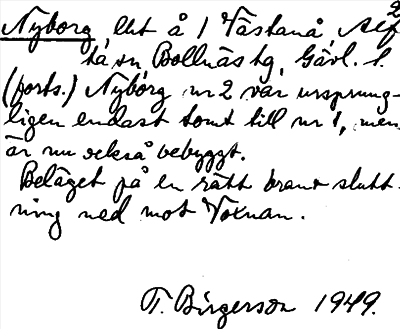 Nyborg, lht å 1 Västanå, Alf-
2
ta sn Bollnäs tg, Gävl. l.
(forts.) Nyborg nr 2 var ursprung-
ligen endast tomt till nr 1, men
är nu också bebyggt.
Beläget på en rätt brant slutt-
ning ned mot Voxnan.
T. Birgerson 1949.